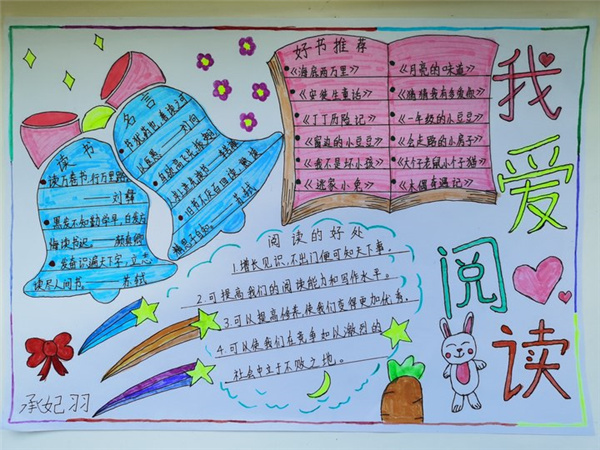 我爱阅读
好书推荐
《海底两万里》
《安徒生童话》
《丁丁历险记》
《窗边的小豆豆》
《我不是坏小孩》
《逃家小兔》
《月亮的味道》
《猜猜我有多爱你》
《一年级的小豆豆》
《会走路的小房子》
《大个子老鼠小个子猫》
《木偶奇遇记》
名言
书犹药也,善读之可
以医愚。——刘向
旧书不厌百回读,熟读
精思子自知。——苏轼
读书
读万卷书,行万里路。
——刘彝
黑发不知勤学早,白发方
悔读书迟。——颜真卿
发奋识遍天下字,立志
读尽人间书。——苏轼
阅读的好处
1.增长见识,不出门便可知天下事。
2.可提高我们的阅读能力和写作水平。
3.可以提高修养,使我们变得更加优秀。
4.可以使我们在竞争如此激烈的
社会中立于不败之地。
承妃羽